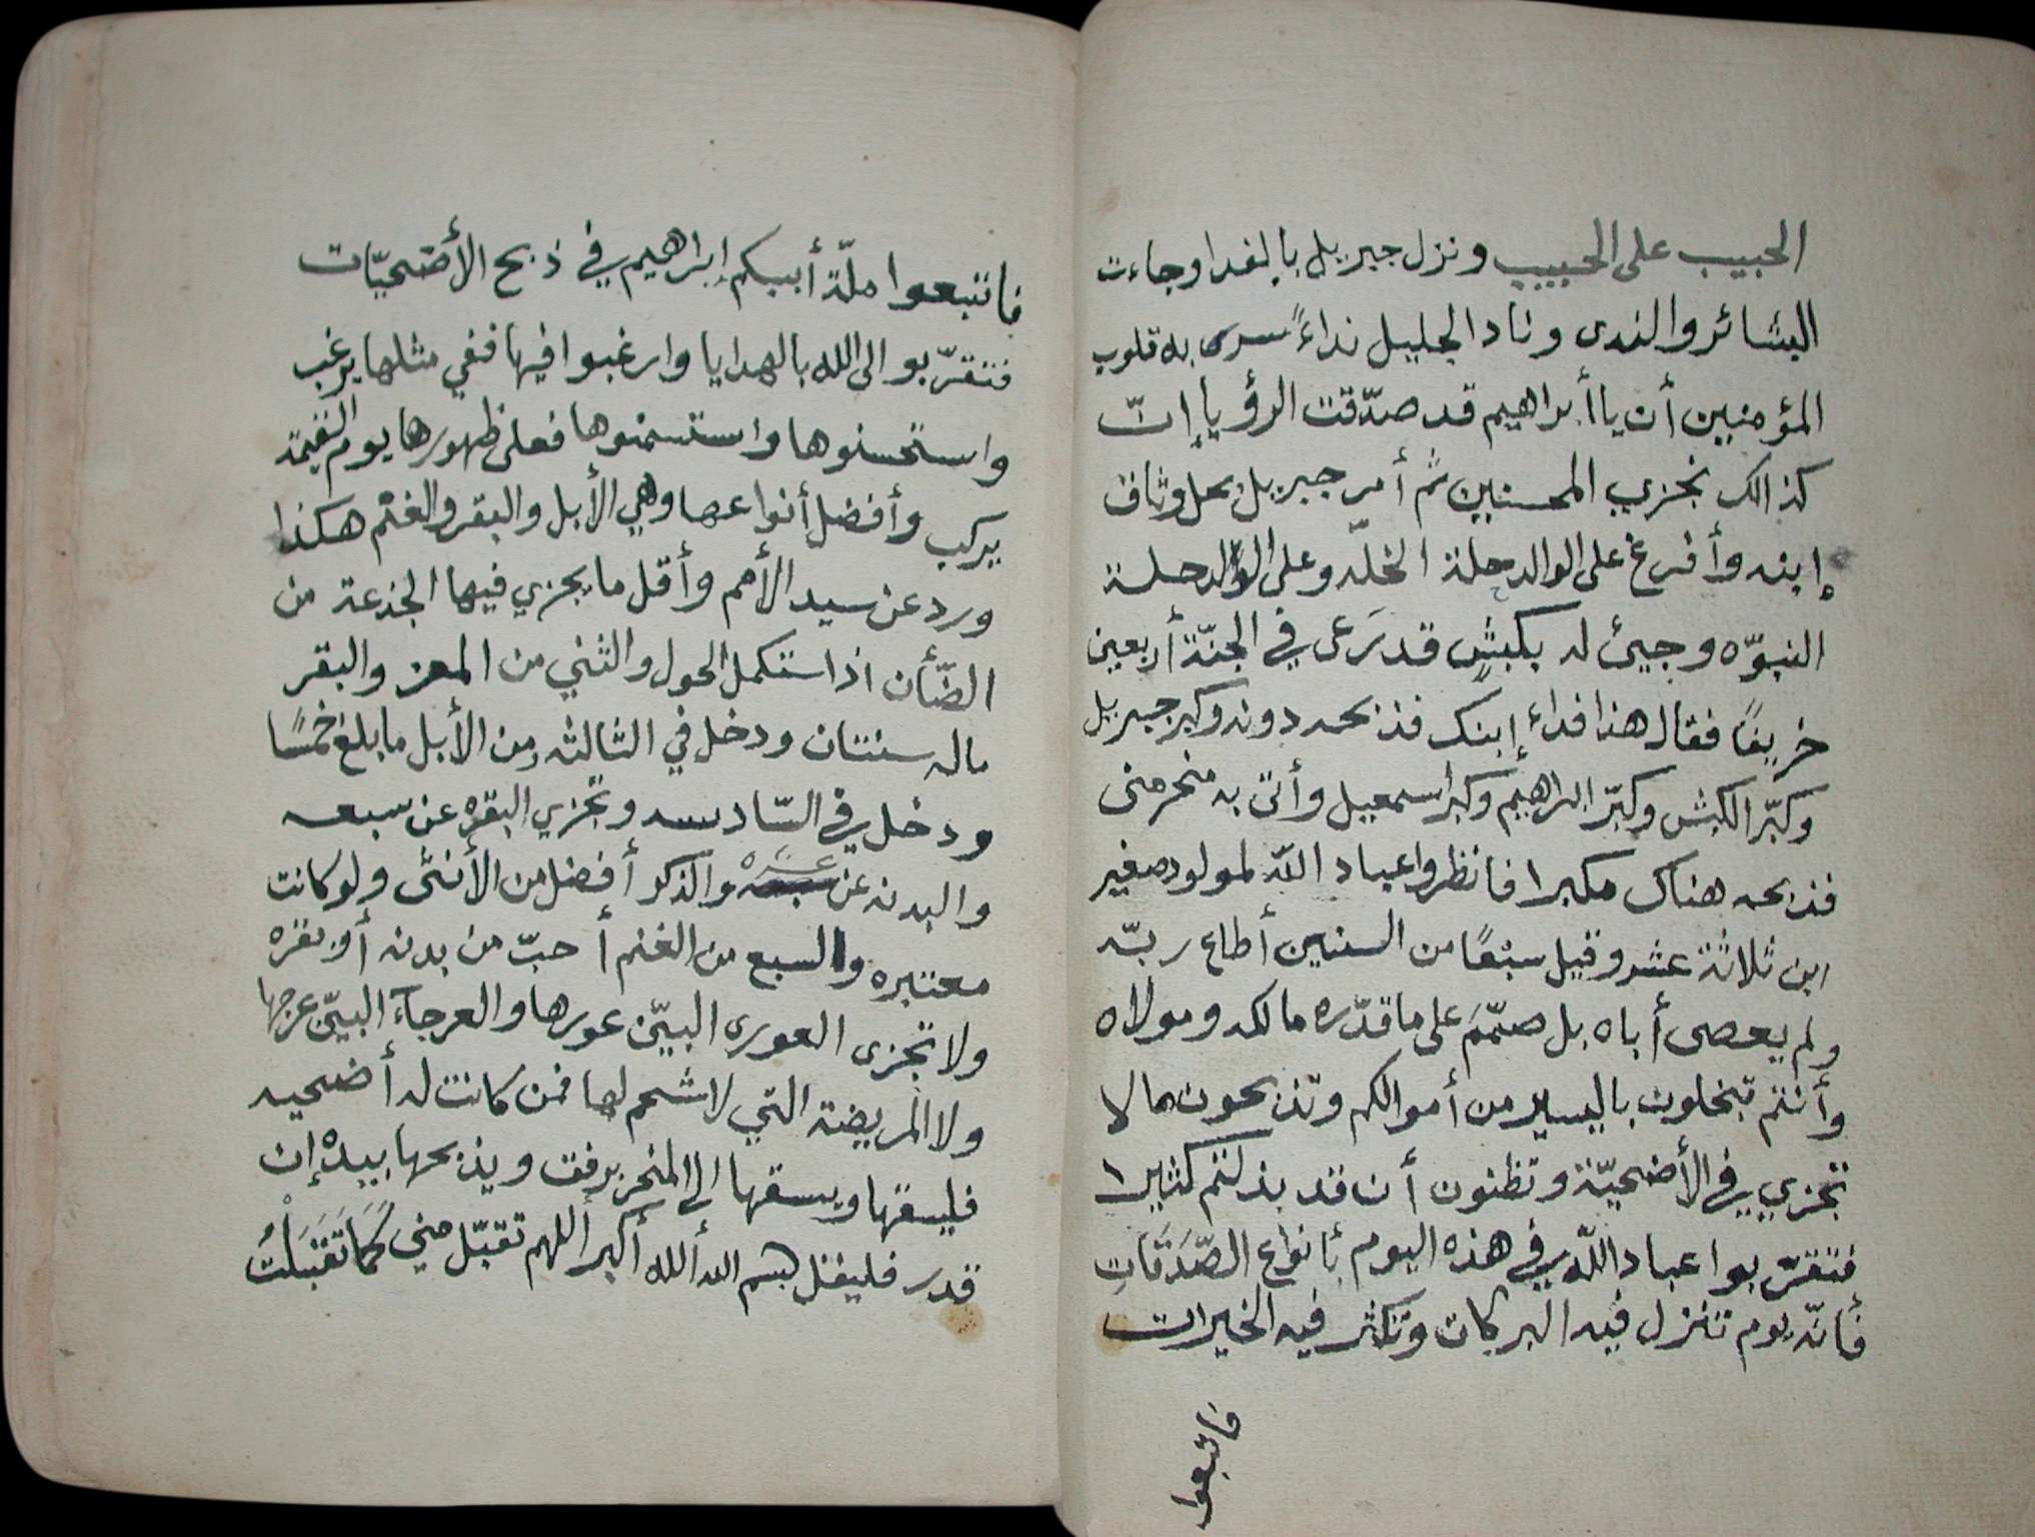 الحبيب على الحبيب ونزل جبريل بالفدا وجاءت
البشائر والندى وناد الجليل نداءً سرى به قلوب
المؤمنين أن يا أبراهيم قد صدّقت الرؤيا إنّ
كذالك نجزي المحسنين ثمّ أمر جبريل بحل وثاق
إبنه وأفرغ على الوالد حلة الخلّه وعلى الولد حلة
النبوّه وجيئ له بكبشٍ قد رَعى في الجنّة أربعين
خريفًا فقال هذا فداء إبنك فذبحه دونه وكبر جبريل
وكبّر الكبش وكبّر ابراهيم وكبر اسمعيل وأتى به منحر منى
فذبحه هناك مكبرا فانظروا عباد اللّه لمولود صغير
ابن ثلاثة عشر وقيل سبعًا من السنين أطاع ربّه
ولم يعصى أباه بل صمّمَ على ما قدّره مالكه ومولاه
وأنتم تبخلون باليسير من أموالكم وتذبحون مالا
تجزي في الأضحيّة وتظنون أن قد بذلتم كثيرا
فتقرّبوا عباد اللّه في هذه اليوم بأنواع الصّدَقَاتِ
فأنّه يوم تنزل فيه البركات وتكثر فيه الخيرات
فاتبعوا
فاتبعوا ملّة أبيكم إبراهيم في ذبح الأضحيّات
فتقرّبو الى الله بالهدايا وارغبوا فيها ففي مثلها يرغب
واستحسنوها واستسمنوها فعلى ظهورها يوم القيمة
يركب وأفضل أنواعها وهي الأبل والبقر والغنم هكذا
ورد عن سيد الأمم وأقل ما يجزي فيها الجذعة من
الضّأن اذا ستكمل الحول والثني من المعز والبقر
ماله سنتان ودخل في الثالثه ومن الأبل ما بلغ خمسًا
ودخل في السّادسه وتجزي البقره عن سبعه
والبدنه عن عشره والذكر أفضل من الأنثى ولو كانت
معتبره والسبع من الغنم أحبّ من بدنه أو بقره
ولا تجزى العورى البيّن عورها والعرجآء البيّن عرجها
ولا المريضة التي لا شحم لها فمن كانت له أضحيه
فليسقها ويسقها الى المنحر برفق ويذبحها بيده إن
قدر فليقل بسم الله ألله أكبر أللهم تقبّل مني كَمَا تَقَبَلْتُ